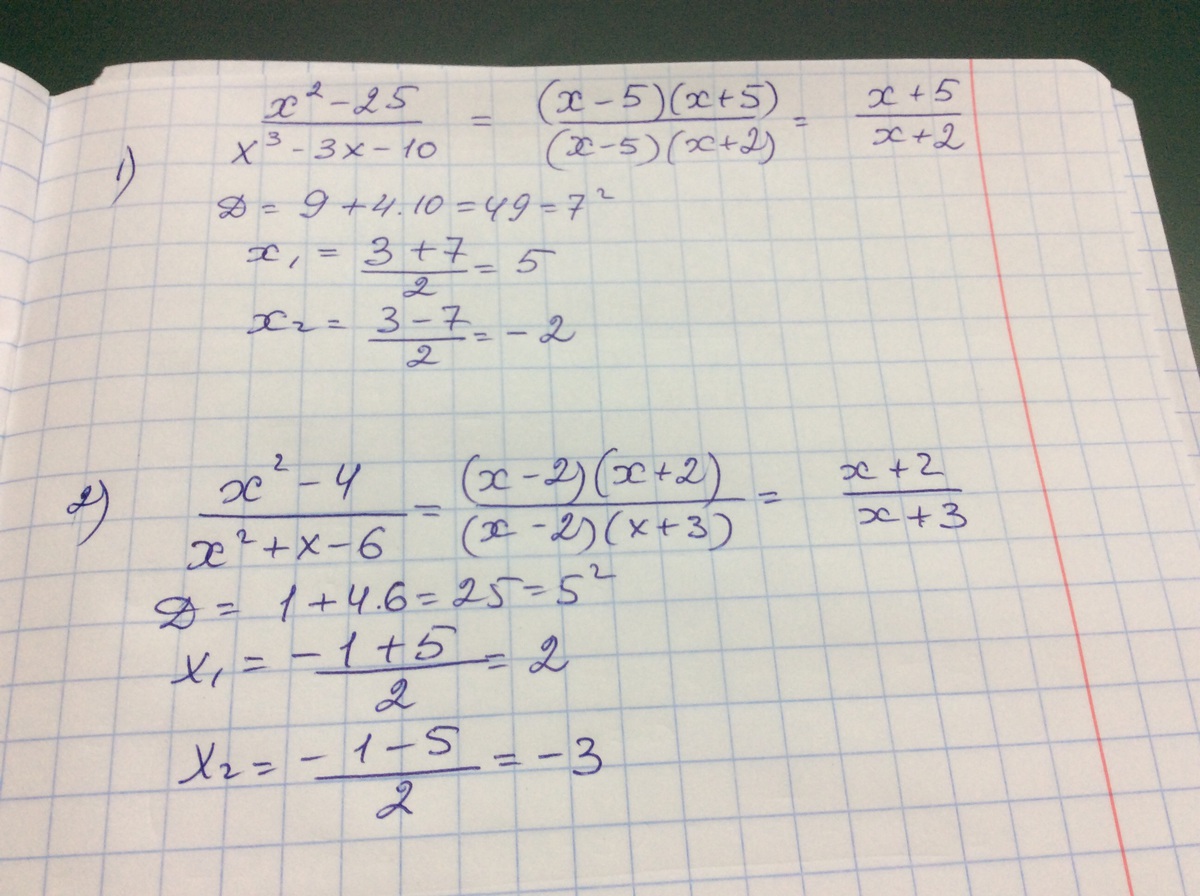 1) (x² - 25)/(x³ - 3x - 10) = ((x - 5)(x + 5))/((x - 5)(x + 2)) = (x + 5)/(x + 2)
D = 9 + 4.10 = 49 = 7²
x₁ = (3 + 7)/2 = 5
x₂ = (3 - 7)/2 = -2
2) (x² - 4)/(x² + x - 6) = ((x - 2)(x + 2))/((x - 2)(x + 3)) = (x + 2)/(x + 3)
D = 1 + 4.6 = 25 = 5²
x₁ = (-1 + 5)/2 = 2
x₂ = (-1 - 5)/2 = -3